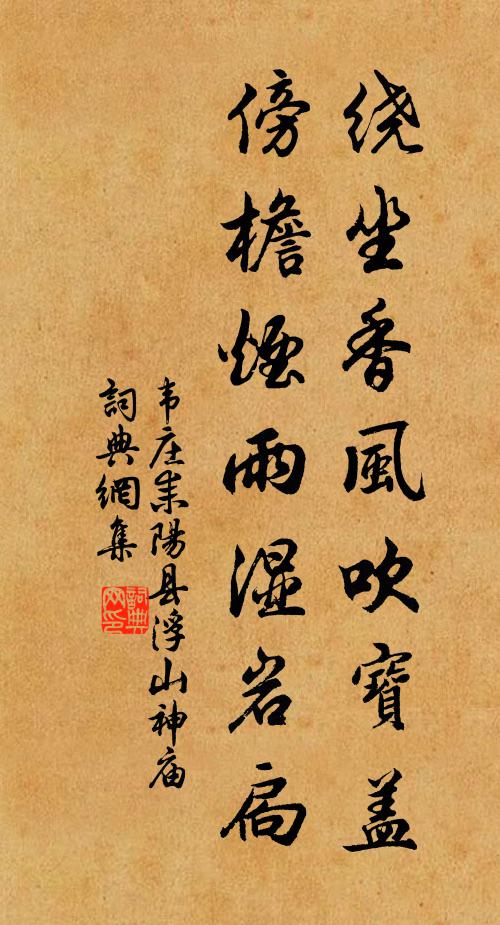 绕坐香風吹寶盖
傍檐煙雨湿岩扃
韦庄耒陽县浮山神庙
詞典網集
詞典网印